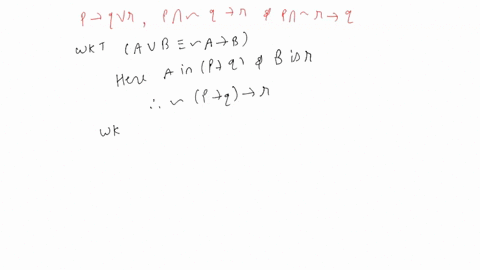 P → q ∨ r, P ∩ ~ q → r & P ∩ ~ r → q
WKT (A ∪ B ≡ ~ A → B)
Here A in (P → q) & B is r
∴ ~ (P → q) → r
WK